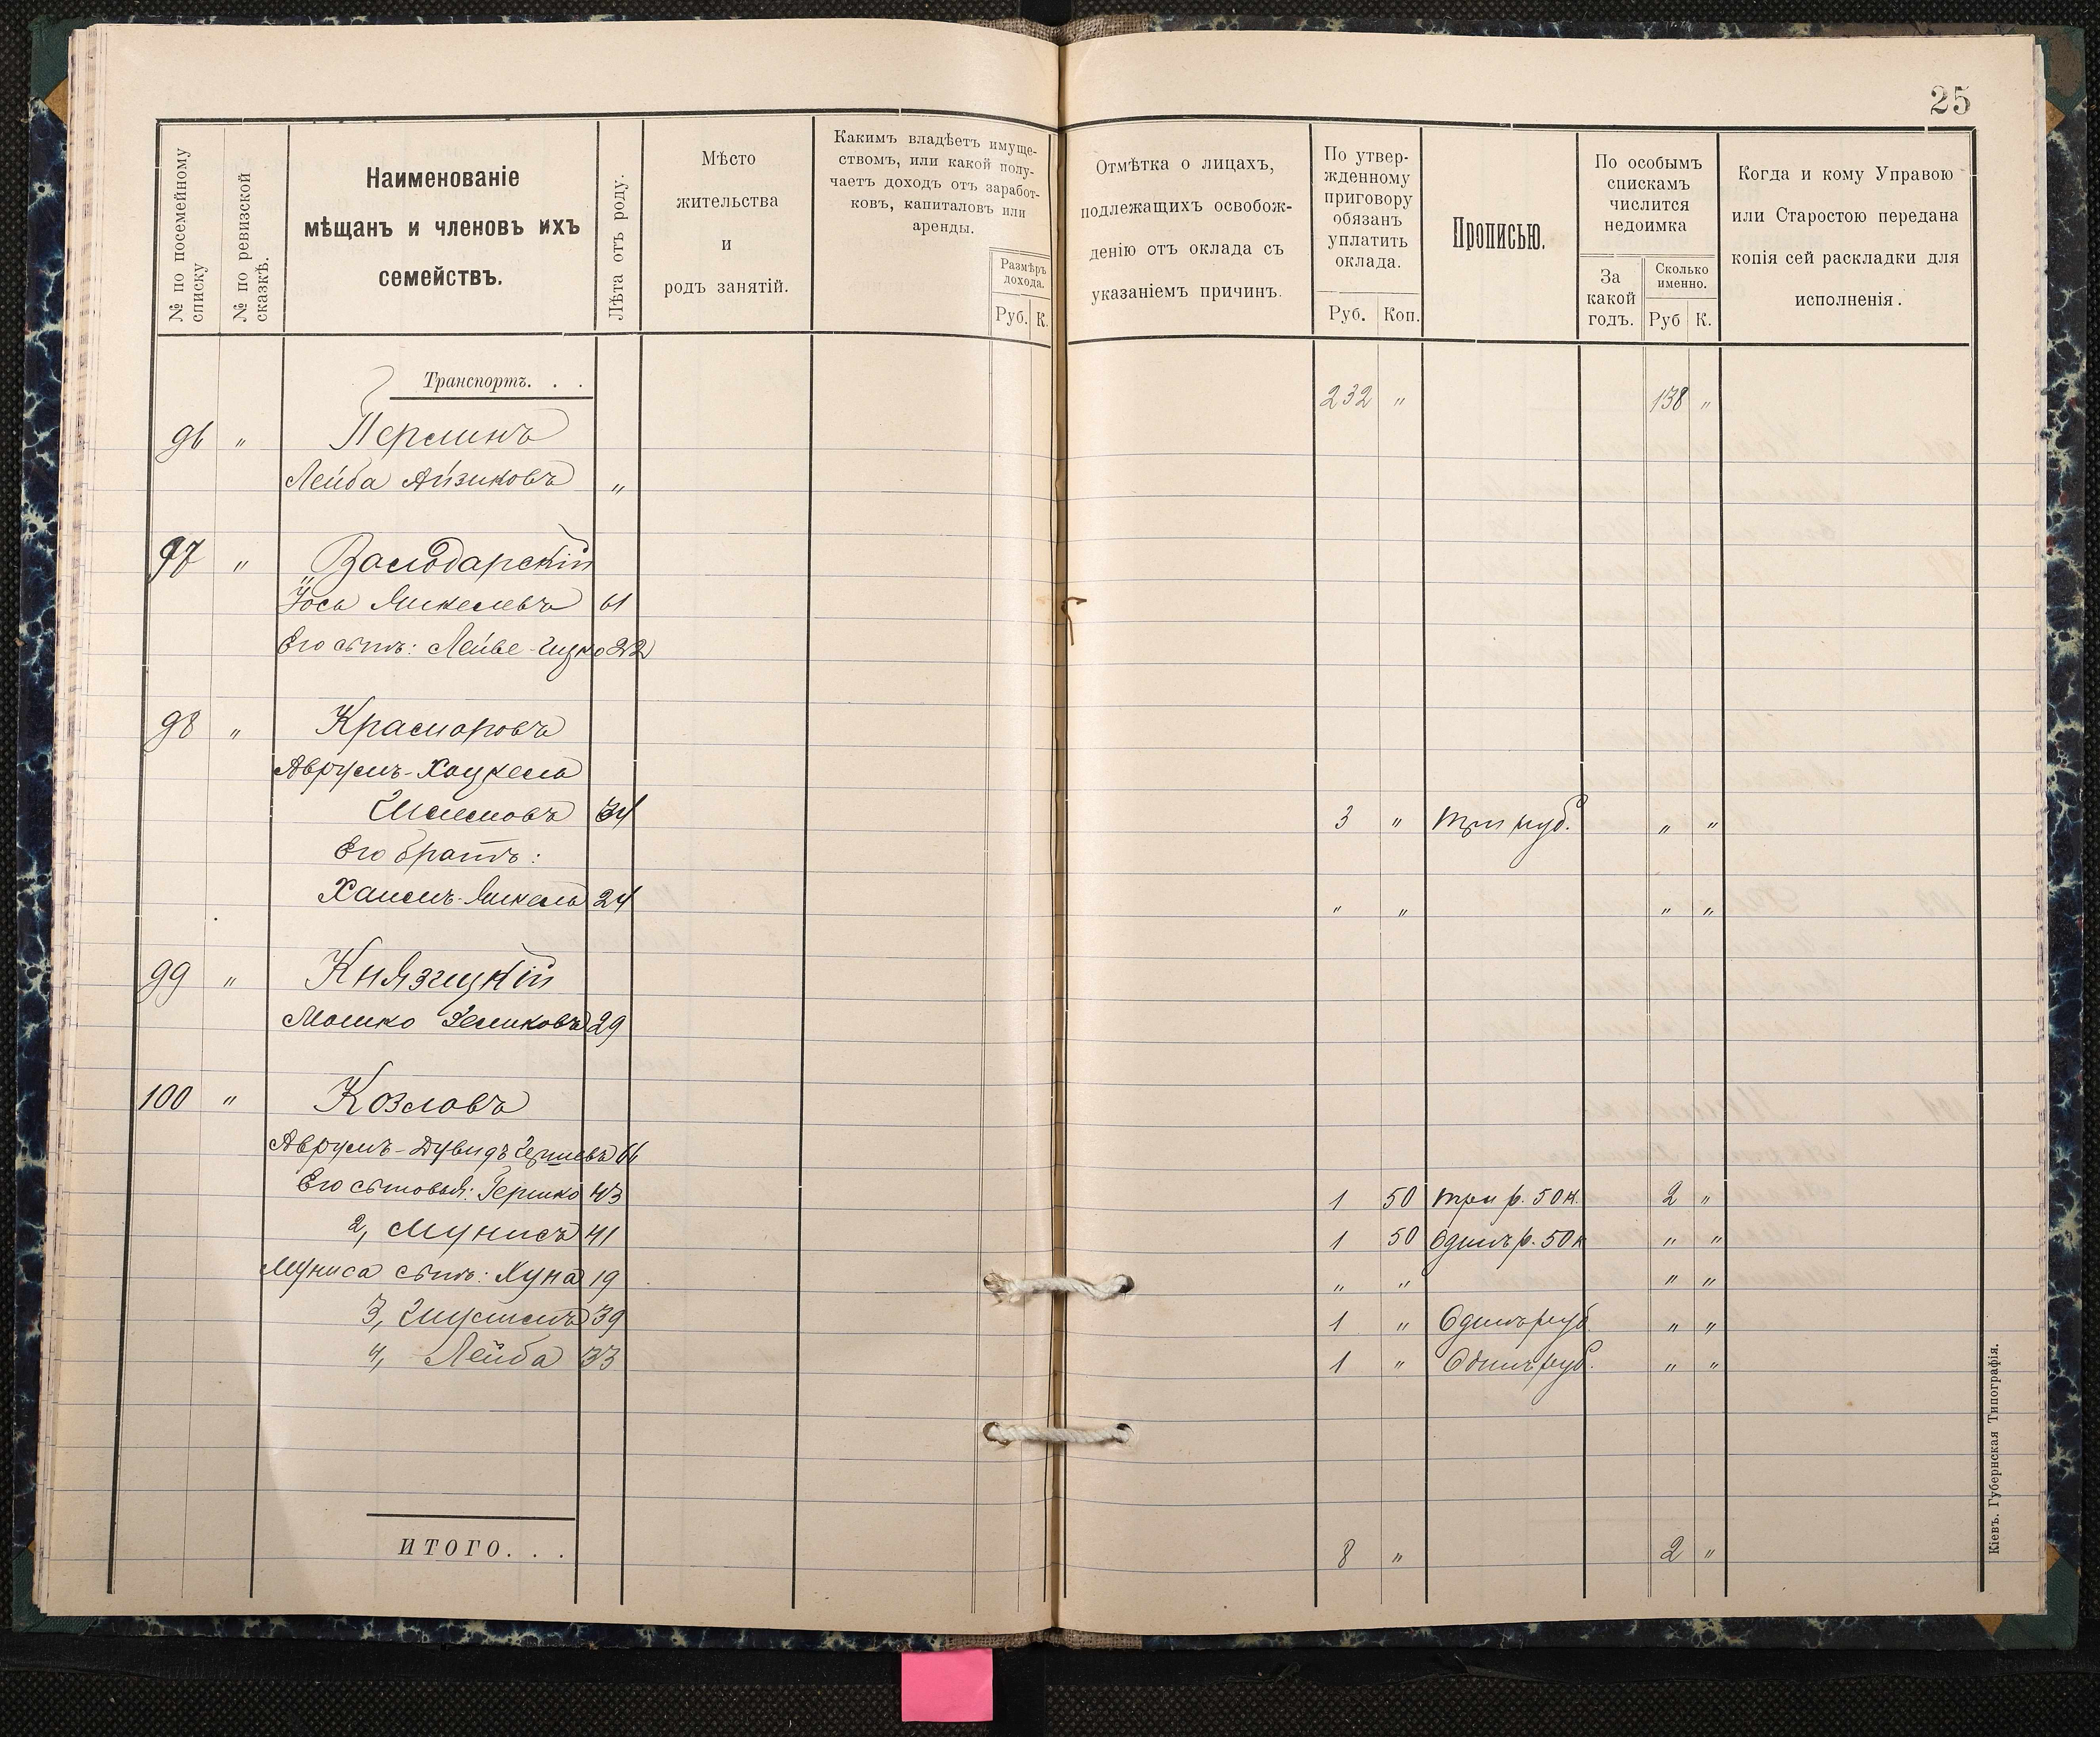 25
№ по посемейному списку
№ по ревизской сказкѣ.
Наименованіе
мѣщанъ и членовъ ихъ
семействъ.
Лѣта отъ роду.
Мѣсто
жительства
и
родъ занятій.
Какимъ владѣетъ имуще-
ствомъ, или какой полу-
чаетъ доходъ отъ заработ-
ковъ, капиталовъ или
аренды.
Размѣръ
дохода.
Руб. К.
Отмѣтка о лицахъ,
подлежащихъ освобож-
денію отъ оклада съ
указаніемъ причинъ.
По утвер-
жденному
приговору
обязанъ
уплатить
оклада.
Руб. Коп.
Прописью.
По особымъ
спискамъ
числится
недоимка
За
какой
годъ.
Сколько
именно.
Руб К.
Когда и кому Управою
или Старостою передана
копія сей раскладки для
исполненія.
Транспортъ. . .
232 " 138 "
96 " Перлинъ
Лейба Айзиковъ "
97 "
Іось Янкелевъ 61
Его сынъ: Лейбе-Ицко 22
98 "
Аврумъ-Хацкель
34 3 " три руб. " "
Его братъ:
Хаимъ-Янкель 24 " " " "
99 " Князицкій
Мошко Зеликовъ 29
100 " Козловъ
Аврумъ-Дувидъ 66
Его сыновья: Гершко 43 1 50 три р. 50 к. 2 "
2, Мунисъ 41 1 50 Одинъ р. 50 к " "
Муниса сынъ: Хуна 19 " " " "
3, 39 1 " Одинъ руб. " "
4, Лейба 33 1 " Одинъ руб. " "
ИТОГО. . . 8 " 2 "
Кіевъ. Губернская Типографія.